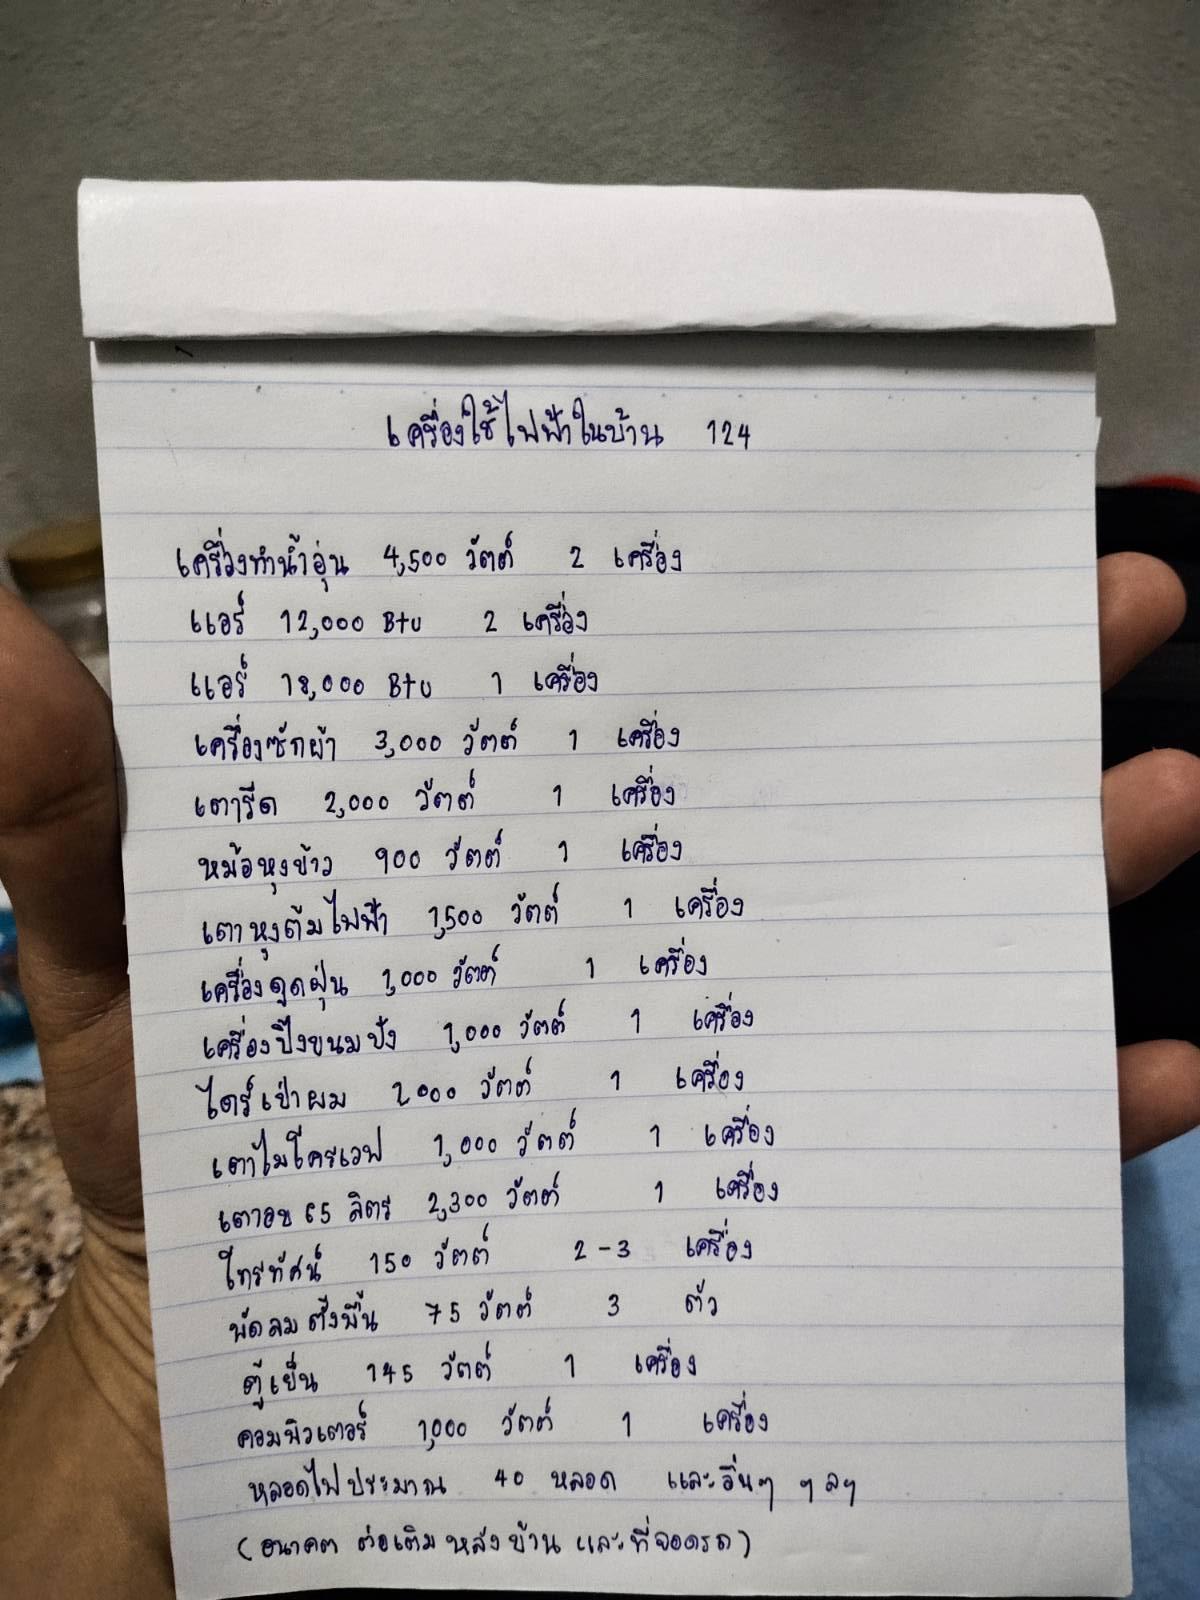 เครื่องใช้ไฟฟ้าในบ้าน 124
เครื่องทำน้ำอุ่น 4,500 วัตต์ 2 เครื่อง
แอร์ 12,000 Btu 2 เครื่อง
แอร์ 18,000 Btu 1 เครื่อง
เครื่องซักผ้า 3,000 วัตต์ 1 เครื่อง
เตารีด 2,000 วัตต์ 1 เครื่อง
หม้อหุงข้าว 900 วัตต์ 1 เครื่อง
เตาหุงต้มไฟฟ้า 1,500 วัตต์ 1 เครื่อง
เครื่องดูดฝุ่น 1,000 วัตต์ 1 เครื่อง
เครื่องปิ้งขนมปัง 1,000 วัตต์ 1 เครื่อง
ไดร์เป่าผม 2000 วัตต์ 1 เครื่อง
เตาไมโครเวฟ 1,000 วัตต์ 1 เครื่อง
เตาอบ 65 ลิตร 2,300 วัตต์ 1 เครื่อง
โทรทัศน์ 150 วัตต์ 2-3 เครื่อง
พัดลมตั้งพื้น 75 วัตต์ 3 ตัว
ตู้เย็น 145 วัตต์ 1 เครื่อง
คอมพิวเตอร์ 1,000 วัตต์ 1 เครื่อง
หลอดไฟประมาณ 40 หลอด และอื่นๆ ฯลฯ
(อนาคต ต่อเติมหลังบ้าน และที่จอดรถ)